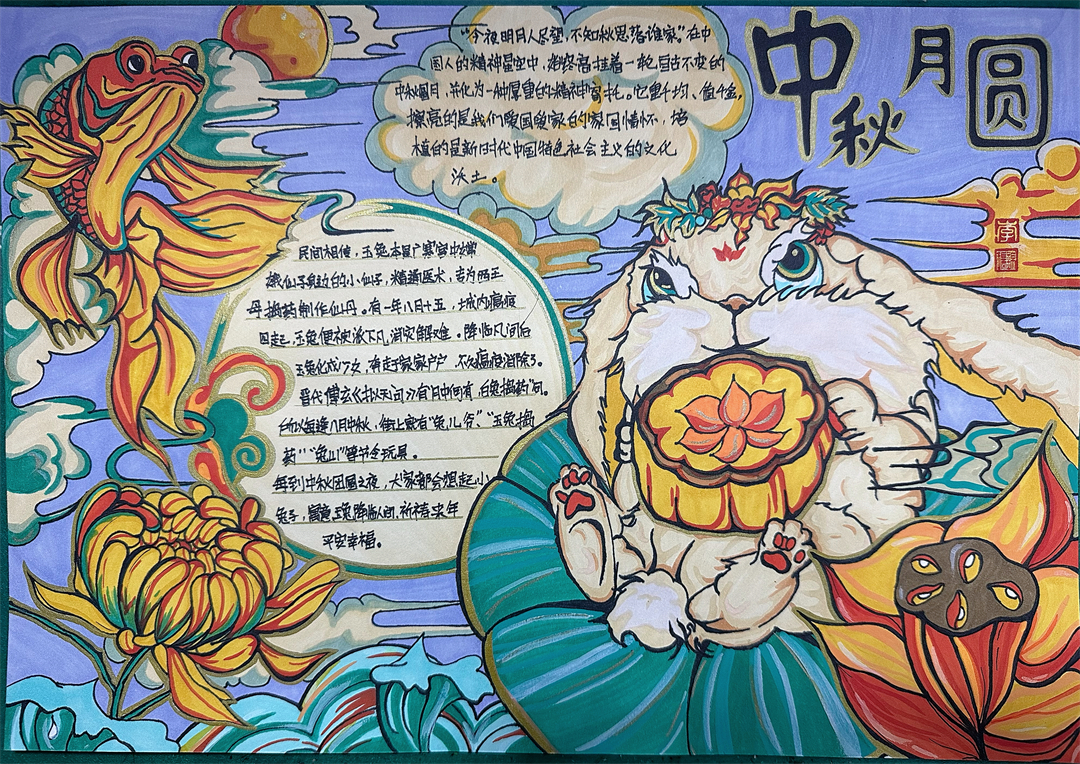 中秋月圆
“今夜明月人尽望，不知秋思落谁家。”在中
国人的精神星空中，始终高挂着一轮亘古不变的
中秋圆月，并化为一种厚重的精神寄托。它重千均、值千金，
擦亮的是我们爱国爱家的家国情怀，培
植的是新时代中国特色社会主义的文化
沃土。
民间相传，玉兔本是广寒宫中嫦
娥仙子身边的小仙子，精通医术，专为西王
母捣药制作仙丹。有一年八月十五，城内瘟疫
四起，玉兔便被派下凡，消灾解难。降临凡间后
玉兔化成少女，奔走于家家户户，不久瘟疫消除了。
晋代傅玄《拟天问》有“月中何有，白兔捣药”句。
所以每逢八月中秋，街上就有“兔儿爷”“玉兔捣
药”“兔山”等节令玩具。
每到中秋团圆之夜，大家都会想起小
兔子，寓意玉兔降临人间，祈祷来年
平安幸福。
李